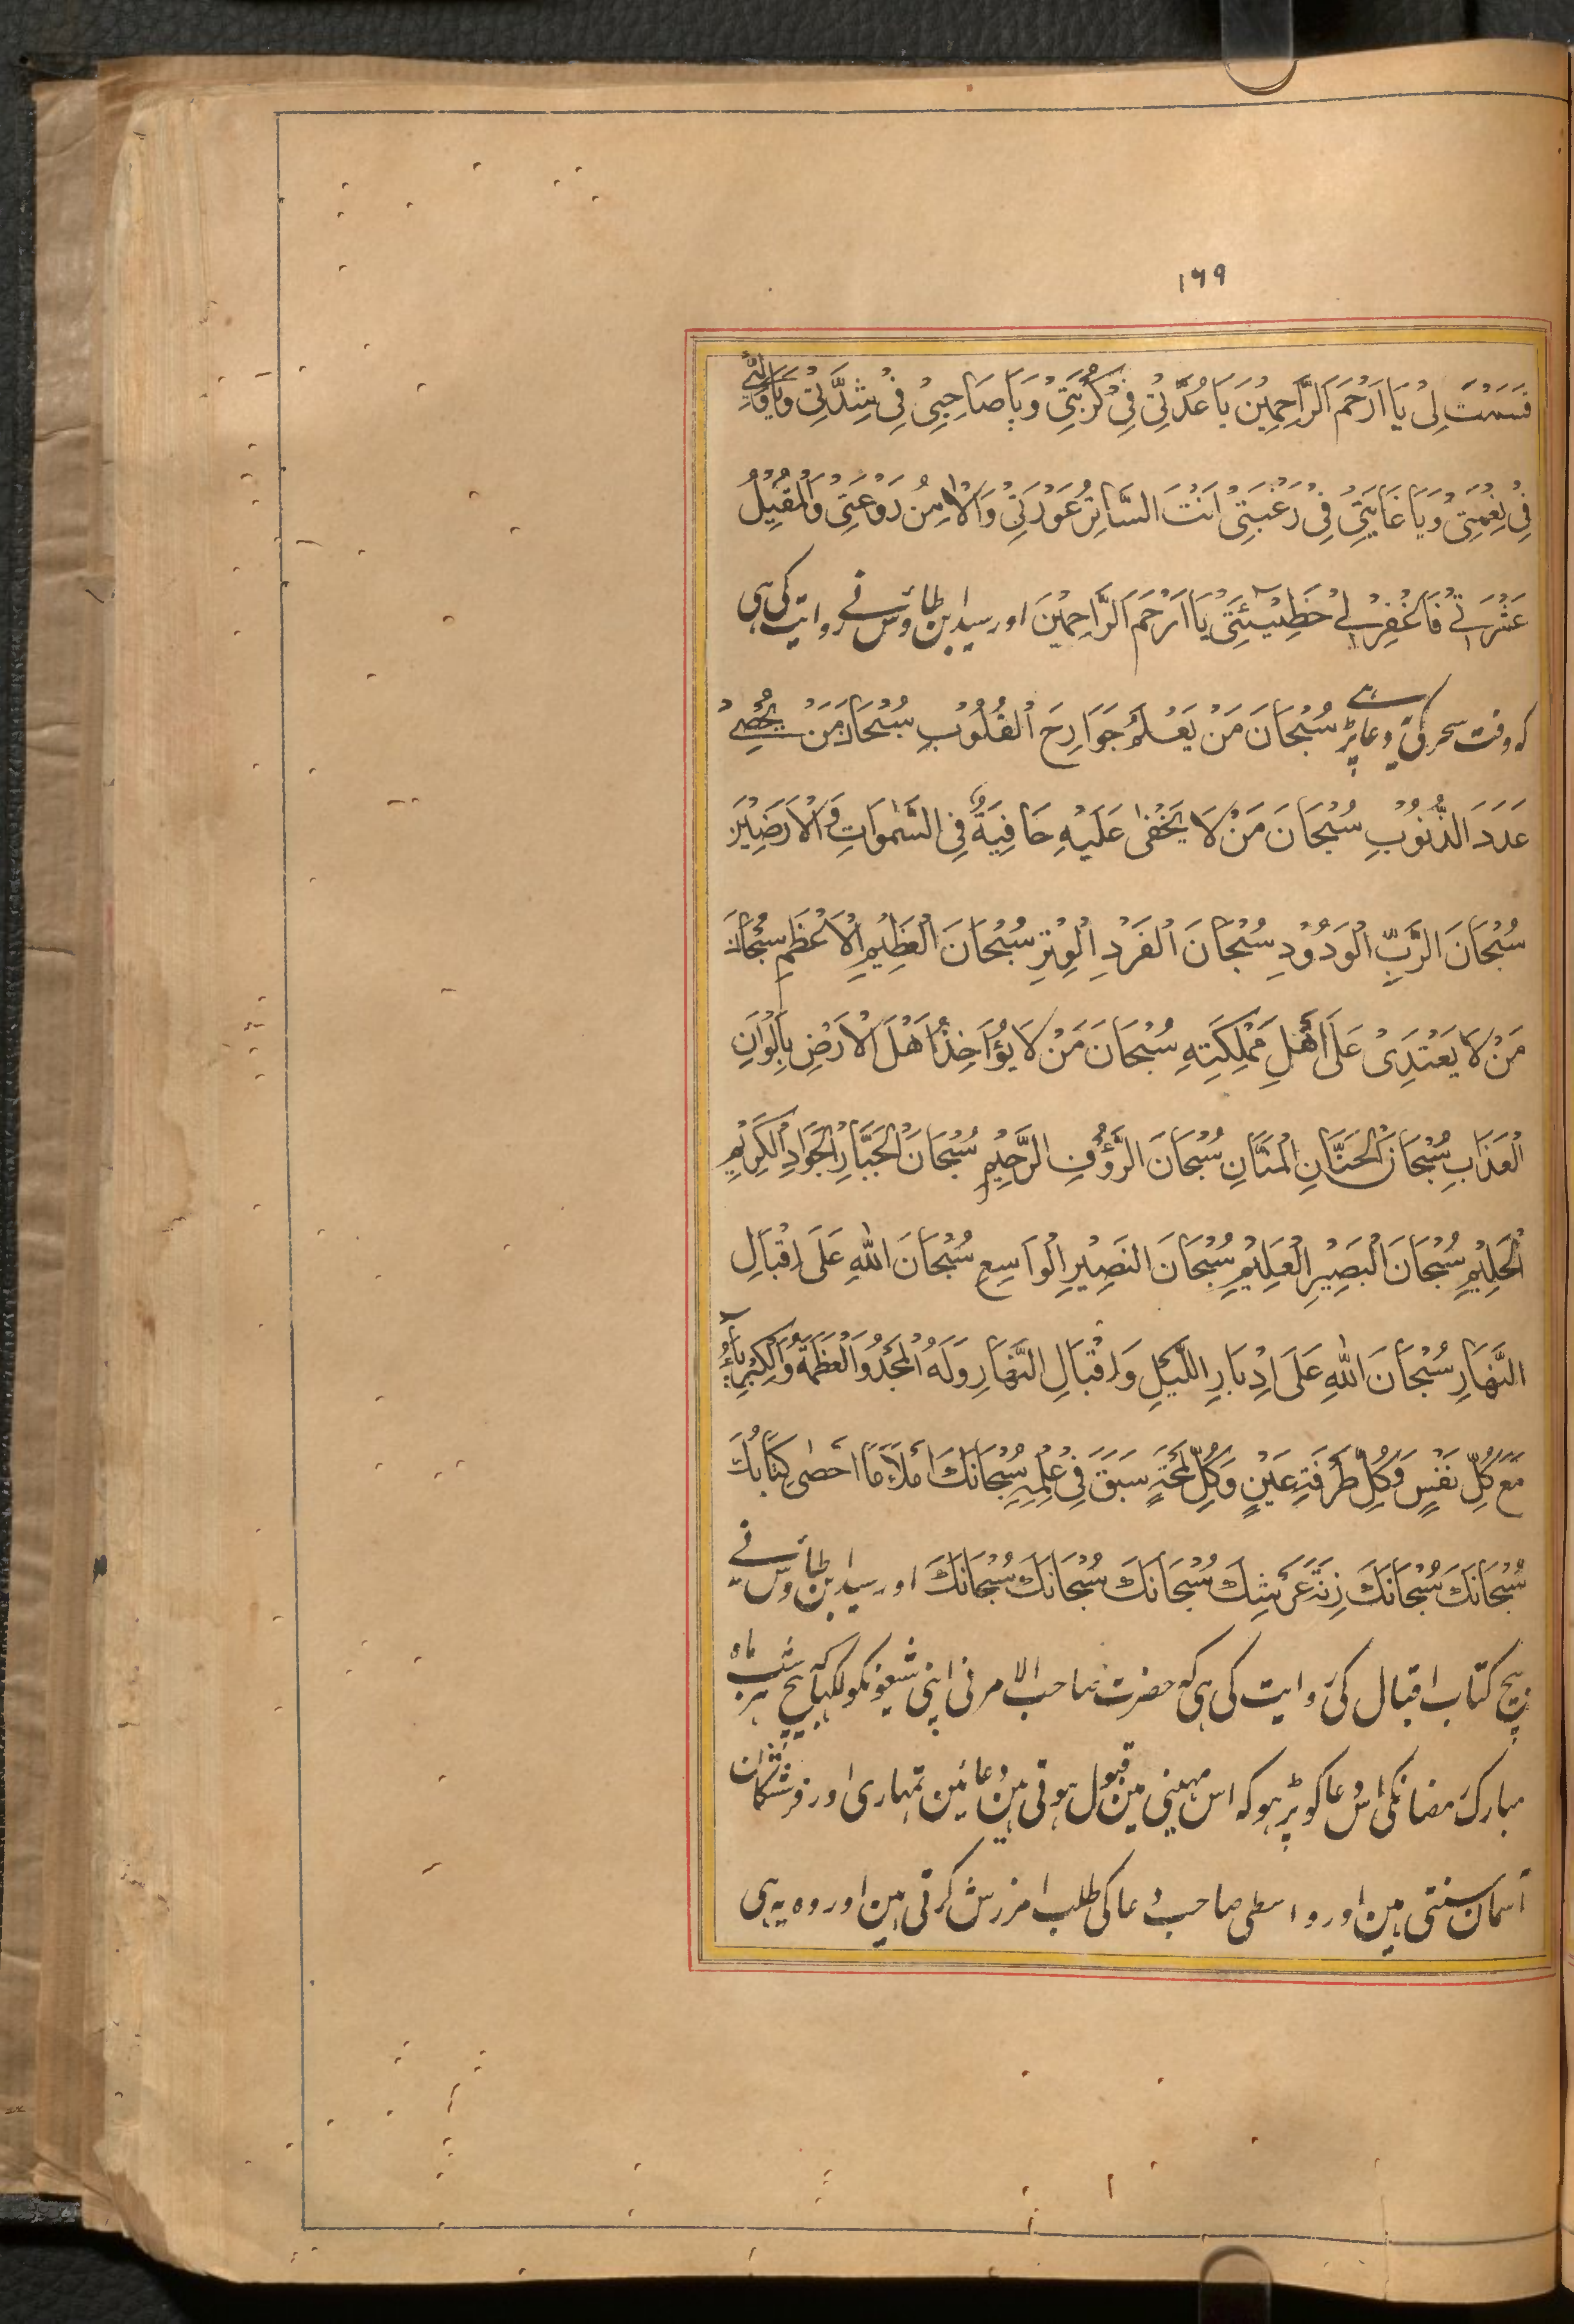 ١٦٩
قَسَمْتَ لِیْ یَا اَرْحَمَ الرَّاحِمِیْنَ یَا عُدَّتِیْ فِیْ كُرْبَتِیْ وَیَا صَاحِبِیْ فِیْ شِدَّتِیْ وَیَا وَلِیِّیْ
فِیْ نِعْمَتِیْ وَیَا غَایَتِیْ فِیْ رَغْبَتِیْ اَنْتَ السَّاتِرُ عَوْرَتِیْ وَالْاٰمِنُ رَوْعَتِیْ وَالْمُقِیْلُ
عَثْرَتِیْ فَاغْفِرْ لِیْ خَطِیْئَتِیْ یَا اَرْحَمَ الرَّاحِمِیْنَ اور سید ابن طاؤس نے روایت کی ہی
کہ وقت سحر کی یہ دعا پڑہے سُبْحَانَ مَنْ یَعْلَمُ جَوَارِحَ الْقُلُوْبِ سُبْحَانَ مَنْ یُحْصِیْ
عَدَدَ الذُّنُوْبِ سُبْحَانَ مَنْ لَا یَخْفٰی عَلَیْهِ خَافِیَةٌ فِی السَّمٰوَاتِ وَالْاَرَضِیْنَ
سُبْحَانَ الرَّبِّ الْوَدُوْدِ سُبْحَانَ الْفَرْدِ الْوِتْرِ سُبْحَانَ الْعَظِیْمِ الْاَعْظَمِ سُبْحَانَ
مَنْ لَا یَعْتَدِیْ عَلَی اَهْلِ مَمْلِكَتِهِ سُبْحَانَ مَنْ لَا یُؤَاخِذُ اَهْلَ الْاَرْضِ بِاَلْوَانِ
الْعَذَابِ سُبْحَانَ الْحَنَّانِ الْمَنَّانِ سُبْحَانَ الرَّؤُفِ الرَّحِیْمِ سُبْحَانَ الْجَبَّارِ الْجَوَادِ الْكَرِیْمِ
الْحَلِیْمِ سُبْحَانَ الْبَصِیْرِ الْعَلِیْمِ سُبْحَانَ النَصِیْرِ الْوَاسِعِ سُبْحَانَ اللهِ عَلَی اِقْبَالِ
النَّهَارِ سُبْحَانَ اللهِ عَلَی اِدْبَارِ اللَّیْلِ وَاِقْبَالِ النَّهَارِ وَلَهُ الْمَجْدُ وَالْعَظَمَةُ وَالْكِبْرِیَآءُ
مَعَ كُلِّ نَفَسٍ وَكُلِّ طَرْفَةِ عَیْنٍ وَكُلِّ لَمْحَةٍ سَبَقَ فِیْ عِلْمِهِ سُبْحَانَكَ مِلْأَ مَا اَحْصٰی كِتَابُكَ
سُبْحَانَكَ سُبْحَانَكَ زِنَةَ عَرْشِكَ سُبْحَانَكَ سُبْحَانَكَ سُبْحَانَكَ اور سید ابن طاؤس نے
بیچ کتاب اقبال کی روایت کی ہی کہ حضرت صاحب الامر نی اپنی شیعونکو لکہا کہ بیچ ہر شب ماہ
مبارک رمضانکی اس دعا کو پڑہو کہ اس مہینی مین قبول ہوتی ہین دعائین تمہاری اور فرشتگان
آسمان سنتی ہین اور واسطی صاحب دعا کی طلب امرزش کرتی ہین اور وہ یہ ہی